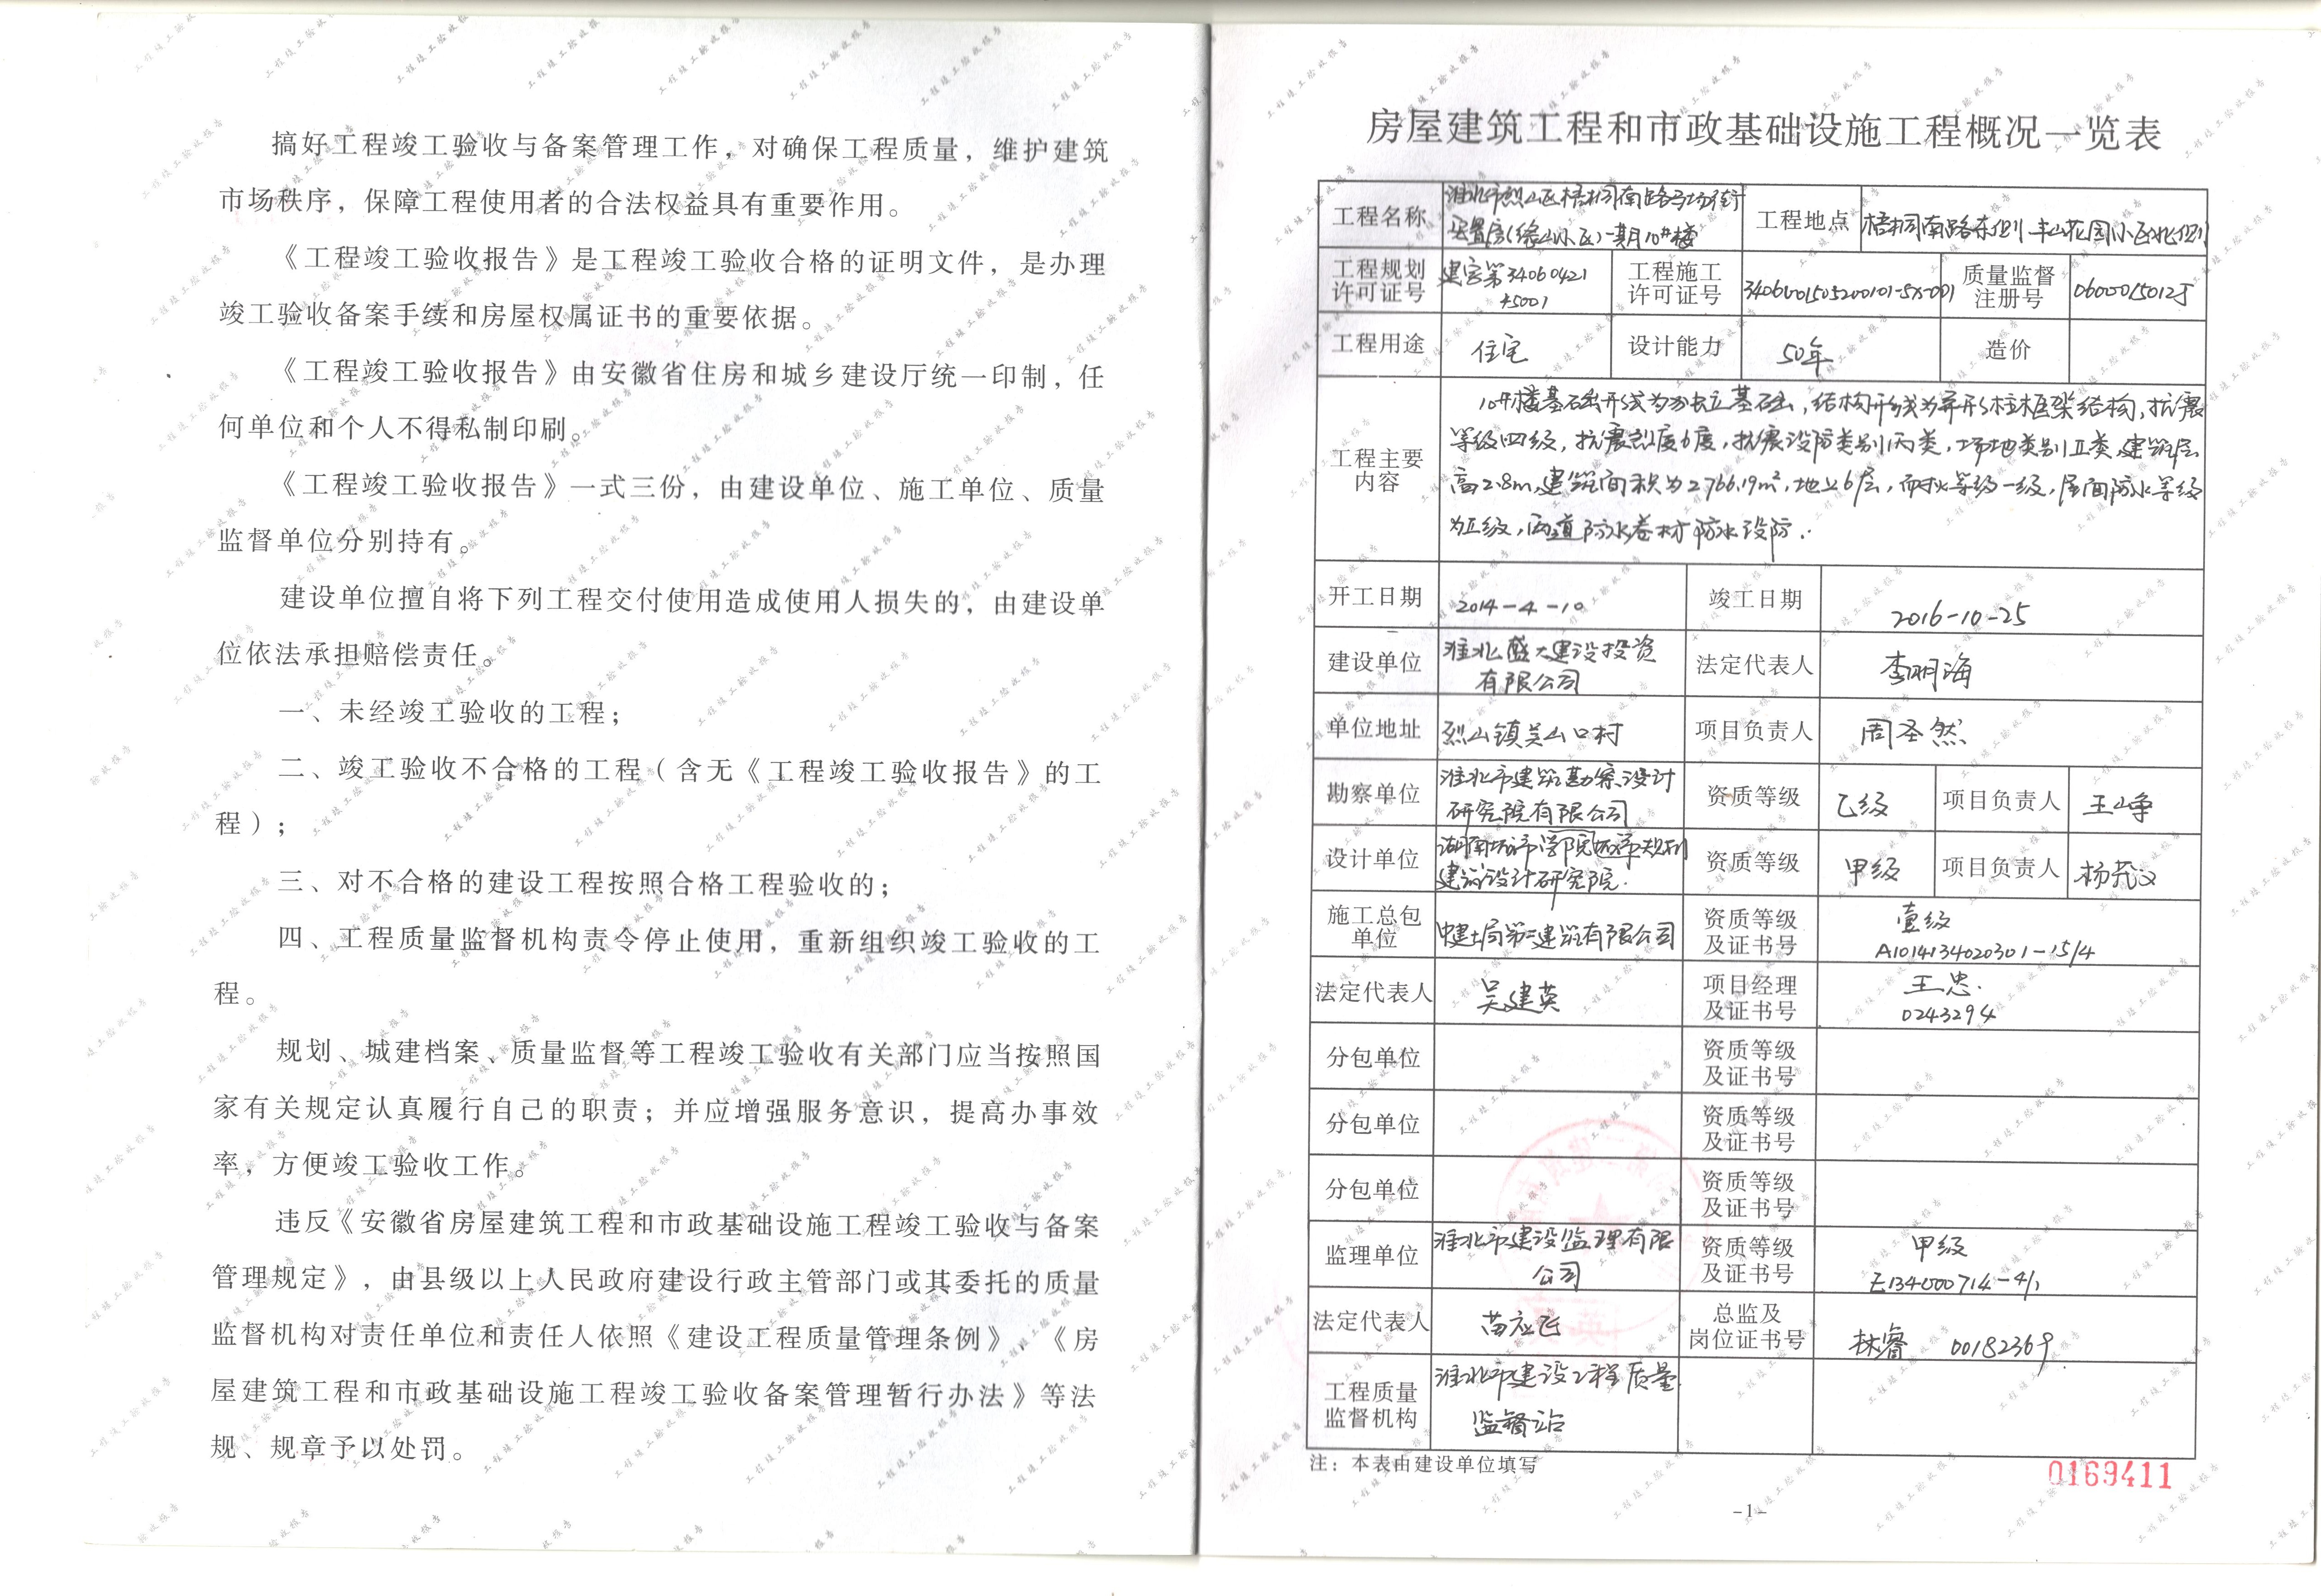 搞好工程竣工验收与备案管理工作，对确保工程质量，维护建筑
市场秩序，保障工程使用者的合法权益具有重要作用。
《工程竣工验收报告》是工程竣工验收合格的证明文件，是办理
竣工验收备案手续和房屋权属证书的重要依据。
《工程竣工验收报告》由安徽省住房和城乡建设厅统一印制，任
何单位和个人不得私制印刷。
《工程竣工验收报告》一式三份，由建设单位、施工单位、质量
监督单位分别持有。
建设单位擅自将下列工程交付使用造成使用人损失的，由建设单
位依法承担赔偿责任。
一、未经竣工验收的工程；
二、竣工验收不合格的工程（含无《工程竣工验收报告》的工
程）；
三、对不合格的建设工程按照合格工程验收的；
四、工程质量监督机构责令停止使用，重新组织竣工验收的工
程。
规划、城建档案、质量监督等工程竣工验收有关部门应当按照国
家有关规定认真履行自己的职责；并应增强服务意识，提高办事效
率，方便竣工验收工作。
违反《安徽省房屋建筑工程和市政基础设施工程竣工验收与备案
管理规定》，由县级以上人民政府建设行政主管部门或其委托的质量
监督机构对责任单位和责任人依照《建设工程质量管理条例》、《房
屋建筑工程和市政基础设施工程竣工验收备案管理暂行办法》等法
规、规章予以处罚。
房屋建筑工程和市政基础设施工程概况一览表
工程名称 淮北市烈山区梧桐南路马场街
安置房(绿山小区)一期10#楼
工程地点 梧桐南路东侧 半山花园小区北侧
工程规划
许可证号 建字第34060421
45001
工程施工
许可证号 3406001505200101-SX-001
质量监督
注册号 06000150125
工程用途 住宅 设计能力 50年 造价
工程主要
内容
10#楼基础形式为独立基础，结构形式为异形柱框架结构，抗震
等级四级，抗震烈度6度，抗震设防类别丙类，场地类别Ⅱ类，建筑层
高2.8m，建筑面积为2766.19m²，地上6层，耐火等级一级，屋面防水等级
为Ⅱ级，两道防水卷材防水设防．
开工日期 2014-4-10 竣工日期 2016-10-25
建设单位 淮北盛大建设投资
有限公司
法定代表人 李明海
单位地址 烈山镇吴山口村 项目负责人 周圣然
勘察单位 淮北市建筑勘察设计
研究院有限公司
资质等级 乙级 项目负责人 王峥
设计单位 湖南城市学院城市规划
建筑设计研究院．
资质等级 甲级 项目负责人
施工总包
单位 中建七局第二建筑有限公司
资质等级
及证书号 壹级
A1014134020301-15/4
法定代表人 吴建英
项目经理
及证书号 王忠．
0243294
分包单位
资质等级
及证书号
分包单位
资质等级
及证书号
分包单位
资质等级
及证书号
监理单位 淮北市建设监理有限
公司
资质等级
及证书号 甲级
E134000714-4/1
法定代表人 苗应
总监及
岗位证书号 林睿 00182369
工程质量
监督机构 淮北市建设工程质量
监督站
注：本表由建设单位填写
0169411
-1-